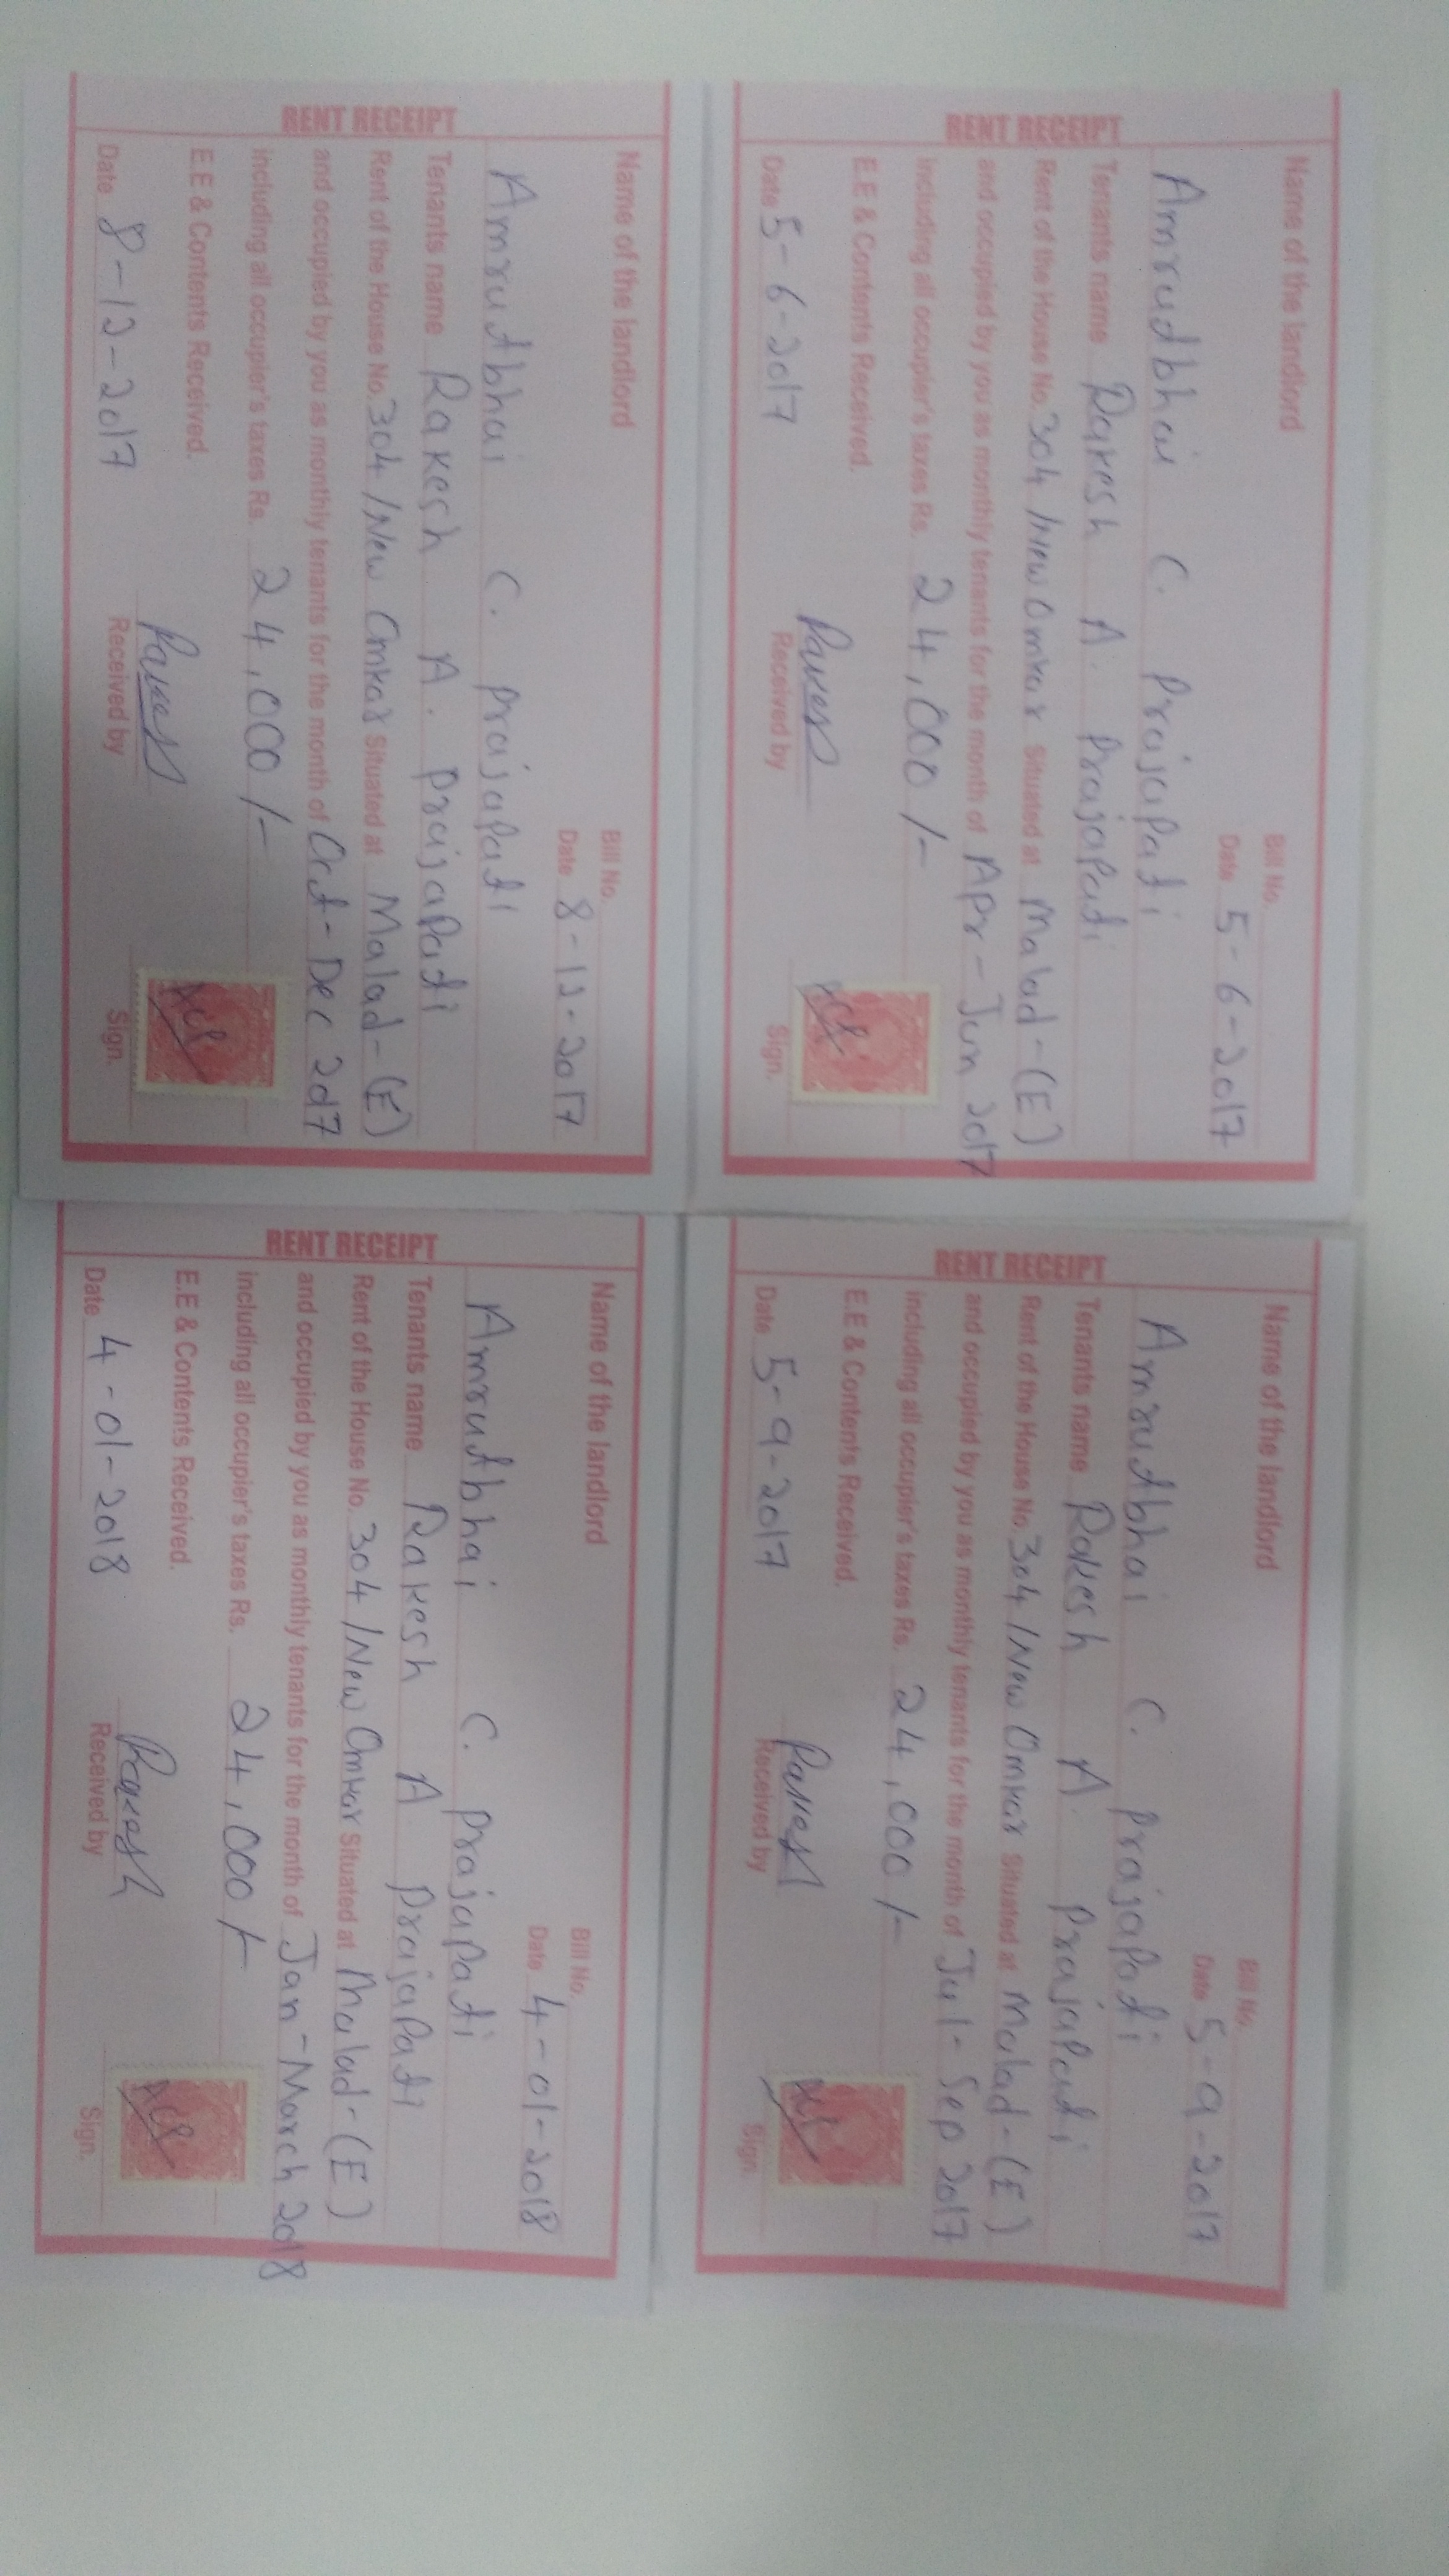 RENT RECEIPT
Name of the landlord
Bill No.
Date 5-6-2017
Amrudbhai C. Prajapati
Tenants name Rakesh A. Prajapati
Rent of the House No. 304 /New Omkar Situated at Malad-(E)
and occupied by you as monthly tenants for the month of Apr-Jun 2017
including all occupier's taxes Rs. 24,000/-
E.E & Contents Received.
ACP
Rakesh
Date 5-6-2017 Received by Sign.
RENT RECEIPT
Name of the landlord
Bill No.
Date 5-9-2017
Amrutbhai C. Prajapati
Tenants name Rakesh A. Prajapati
Rent of the House No. 304 /New Omkar Situated at Malad-(E)
and occupied by you as monthly tenants for the month of Jul-Sep 2017
including all occupier's taxes Rs. 24,000/-
E.E & Contents Received.
ACP
Rakesh
Date 5-9-2017 Received by Sign.
RENT RECEIPT
Name of the landlord
Bill No.
Date 8-12-2017
Amrutbhai C. Prajapati
Tenants name Rakesh A. Prajapati
Rent of the House No. 304 /New Omkar Situated at Malad-(E)
and occupied by you as monthly tenants for the month of Oct-Dec 2017
including all occupier's taxes Rs. 24,000/-
E.E & Contents Received.
ACP
Rakesh
Date 8-12-2017 Received by Sign.
RENT RECEIPT
Name of the landlord
Bill No.
Date 4-01-2018
Amrutbhai C. Prajapati
Tenants name Rakesh A Prajapati
Rent of the House No. 304 /New Omkar Situated at Malad-(E)
and occupied by you as monthly tenants for the month of Jan-March 2018
including all occupier's taxes Rs. 24,000/-
E.E & Contents Received.
ACP
Rakesh
Date 4-01-2018 Received by Sign.